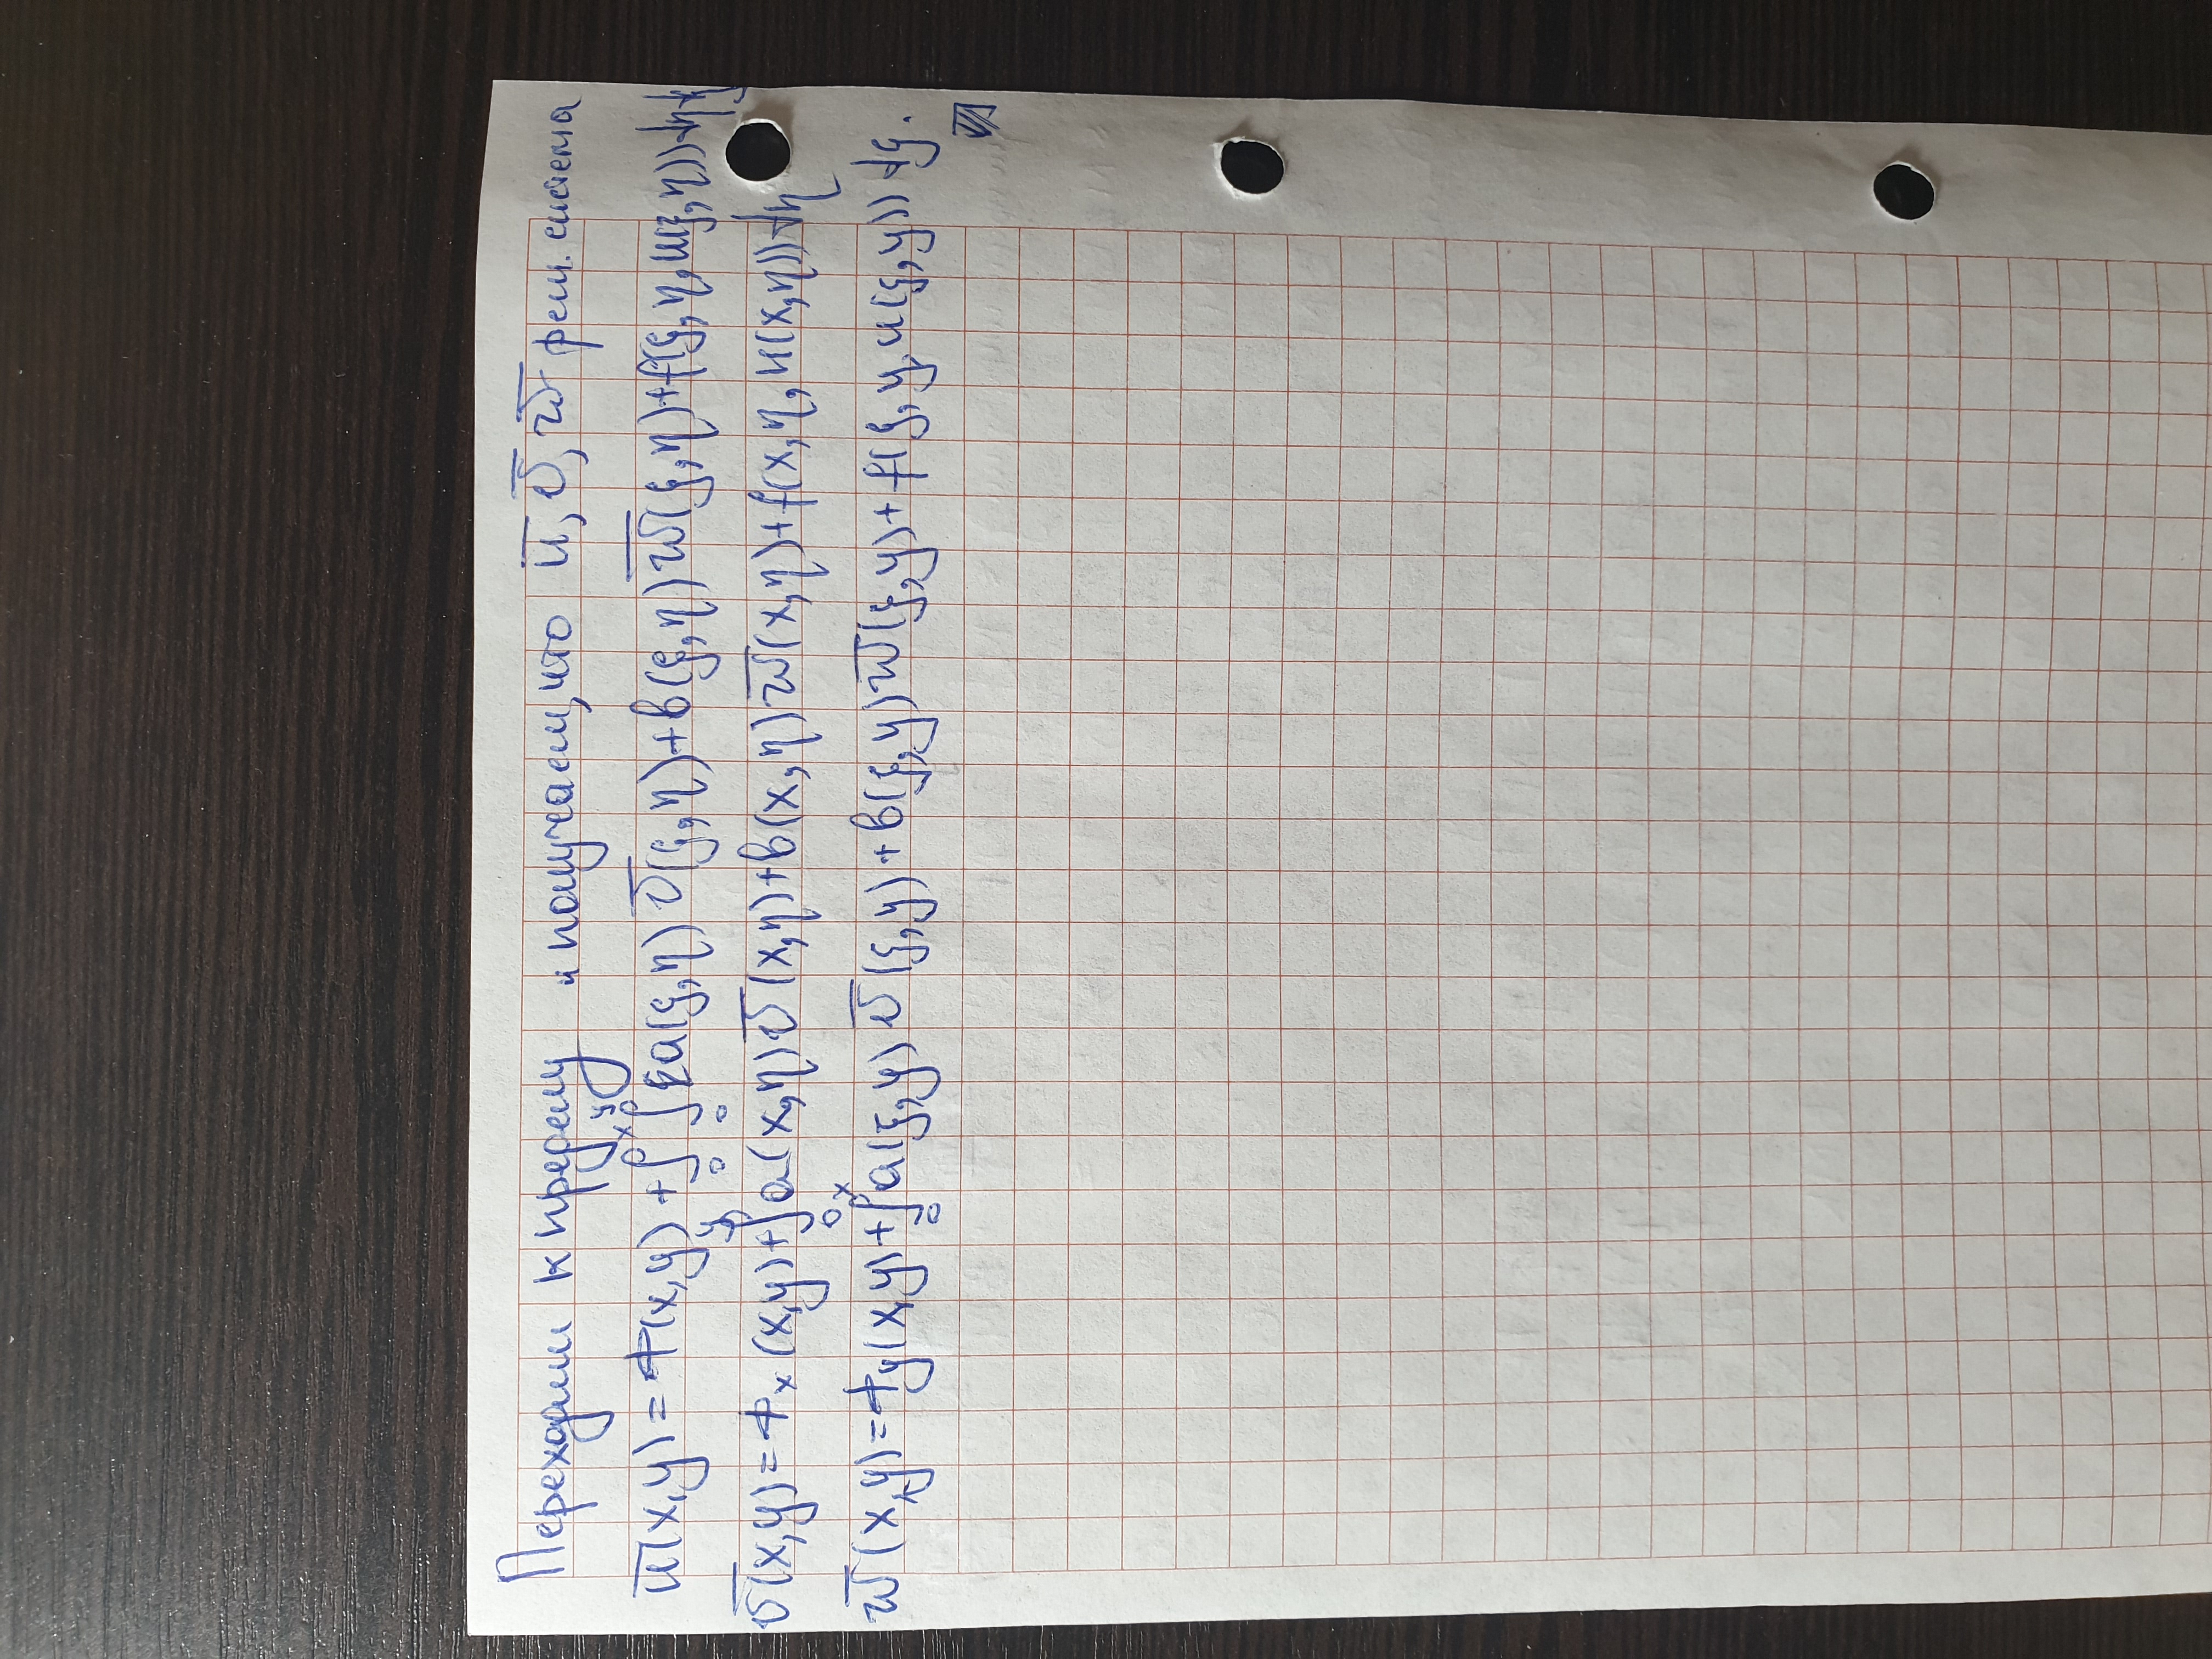 Переходим к пределу и получаем, что ū, v̄, w̄ реш. система
ū(x,y) = Φ(x,y) + ∫₀ˣ ∫₀ʸ a(ξ,η) v̄(ξ,η) + b(ξ,η) w̄(ξ,η) + f(ξ,η,u(ξ,η)) dη dξ
v̄(x,y) = Φₓ(x,y) + ∫₀ʸ a(x,η) v̄(x,η) + b(x,η) w̄(x,η) + f(x,η,u(x,η)) dη
w̄(x,y) = Φ_y(x,y) + ∫₀ˣ a(ξ,y) v̄(ξ,y) + b(ξ,y) w̄(ξ,y) + f(ξ,y,u(ξ,y)) dξ.